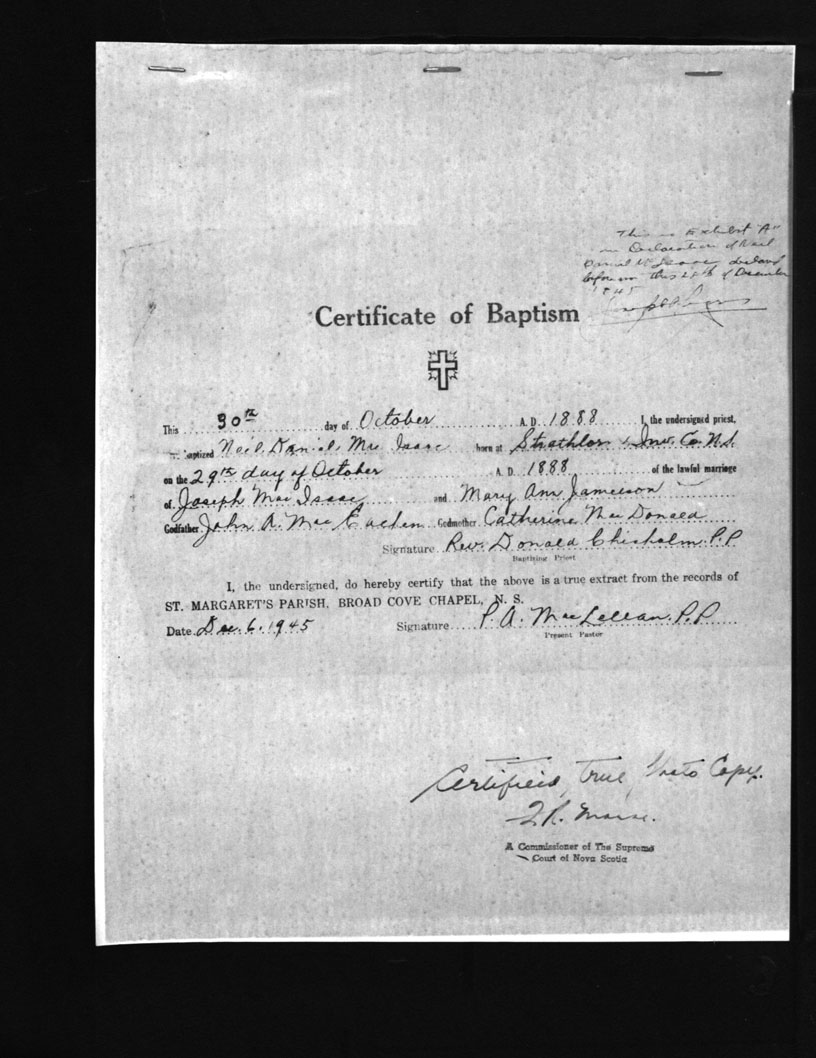 This is Exhibit "A"
in Declaration of Neil
Daniel McIsaac declared
before me this 28th of December
1945
Certificate of Baptism
This 30th day of October A.D. 1888 I, the undersigned priest,
baptized Neil Daniel Mac Isaac born at Strathlorne Inv. Co. N.S.
on the 29th day of October A.D. 1888 of the lawful marriage
of Joseph Mac Isaac and Mary Ann Jameison
Godfather John A. Mac Eachen Godmother Catherine Mac Donald
Signature Rev. Donald Chisholm. P.P
Baptizing Priest
I, the undersigned, do hereby certify that the above is a true extract from the records of
ST. MARGARET'S PARISH, BROAD COVE CHAPEL, N. S.
Date Dec. 6. 1945 Signature P. A. MacLellan. P.P
Present Pastor
Certified, True, Photo Copy.
A Commissioner of The Supreme
Court of Nova Scotia